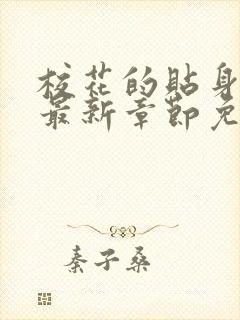 校花的贴身
最新章节免
秦子桑